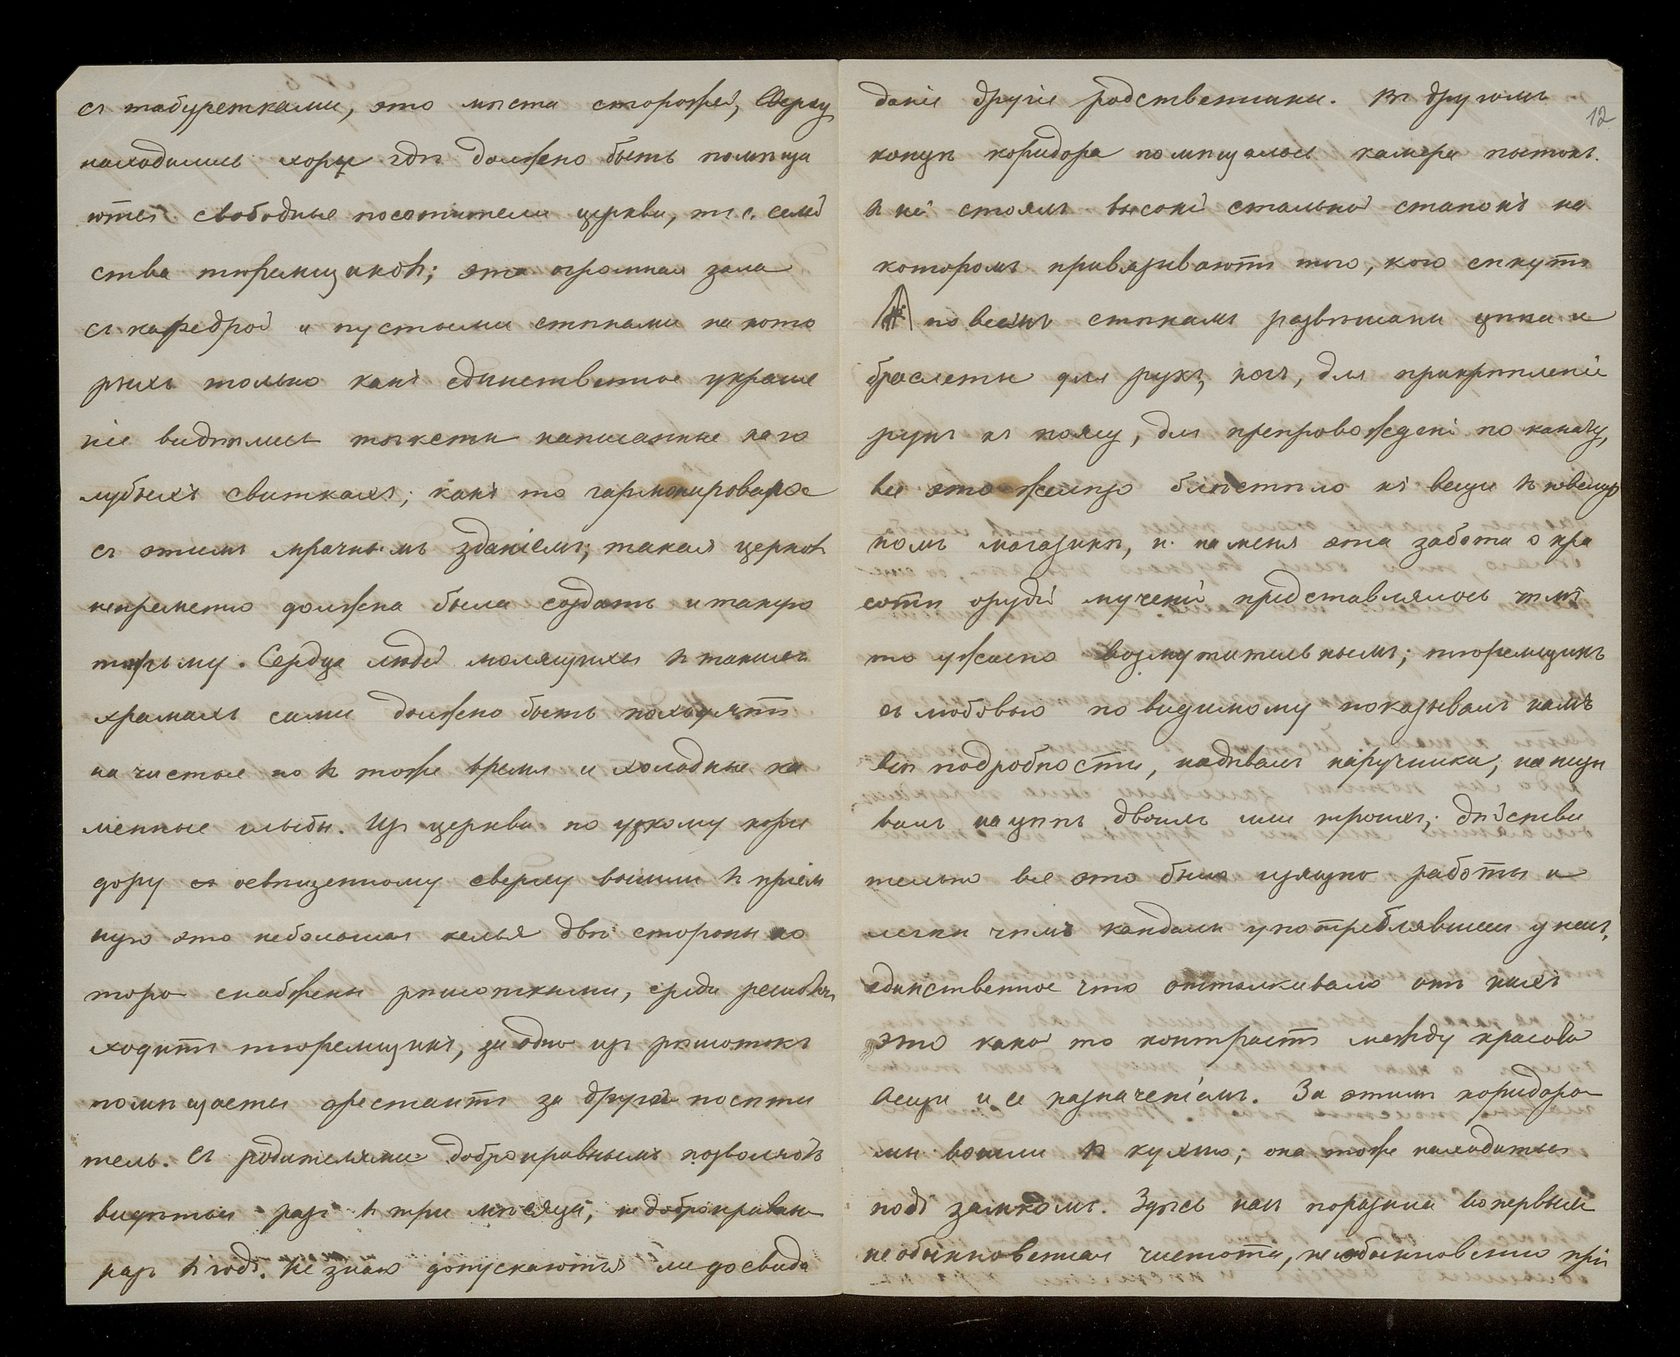 съ табуретками, это мѣста сторожей, Сверху
находились хоры гдѣ должно быть помѣща
ются свободные посѣтители церкви, т. е. семей
ства тюремщиковъ; эта огромная зала
съ кафедрой и пустыми стѣнами на кото
рыхъ только какъ единственное украше
ніе виднѣлись тексты написанные на го
лубыхъ свиткахъ; какъ то гармонировалъ
съ этимъ мрачнымъ зданіемъ; такая церковь
непремѣнно должна была создать и такую
тюрьму. Сердца людей молящихся въ такихъ
храмахъ сами должно быть походятъ
на чистые но въ тоже время и холодные ка
менные глыбы. Изъ церкви по узкому кори
дору освѣщенному сверху вошли въ пріем
ную это небольшая келья двѣ стороны ко
торой снабжены рѣшотками, среди рѣшотокъ
ходитъ тюремщикъ, за одно изъ рѣшотокъ
помѣщается арестантъ за другой посѣти
тель. Съ родителями добронравнымъ позволяютъ
видѣться разъ въ три мѣсяца, недобронравн
разъ въ годъ. Не знаю допускаются ли до свида
12
данія другіе родственники. Въ другомъ
концѣ коридора помѣщалась камера пытокъ.
въ ней стоялъ высокій стальной станокъ на
которомъ привязываютъ того, кого сѣкутъ
по всѣмъ стѣнамъ развѣшаны цѣпи и
браслеты для рукъ, ногъ, для прикрѣпленія
рукъ къ поясу, для препровожденія по канату,
все это желѣзо блестѣло какъ вещи въ ювелир
номъ магазинѣ, и на меня эта забота о кра
сотѣ орудій мученій представлялось чѣмъ
то ужасно возмутительнымъ; тюремщикъ
съ любовью по видимому показывалъ намъ
всѣ подробности, надѣвалъ наручники, на цѣпи
валъ на цѣпь двоихъ или троихъ; дѣйстви
тельно все это было изящно работы и
легки чѣмъ кандалы употреблявшіеся у насъ,
единственное что отталкивало отъ нихъ
это какой то контрастъ между красотой
вещи и ее назначеніемъ. За этимъ коридоро
мы вошли въ кухню; она тоже находится
подъ замкомъ. Здѣсь насъ поразила во первыхъ
необыкновенная чистота, необыкновенно прі